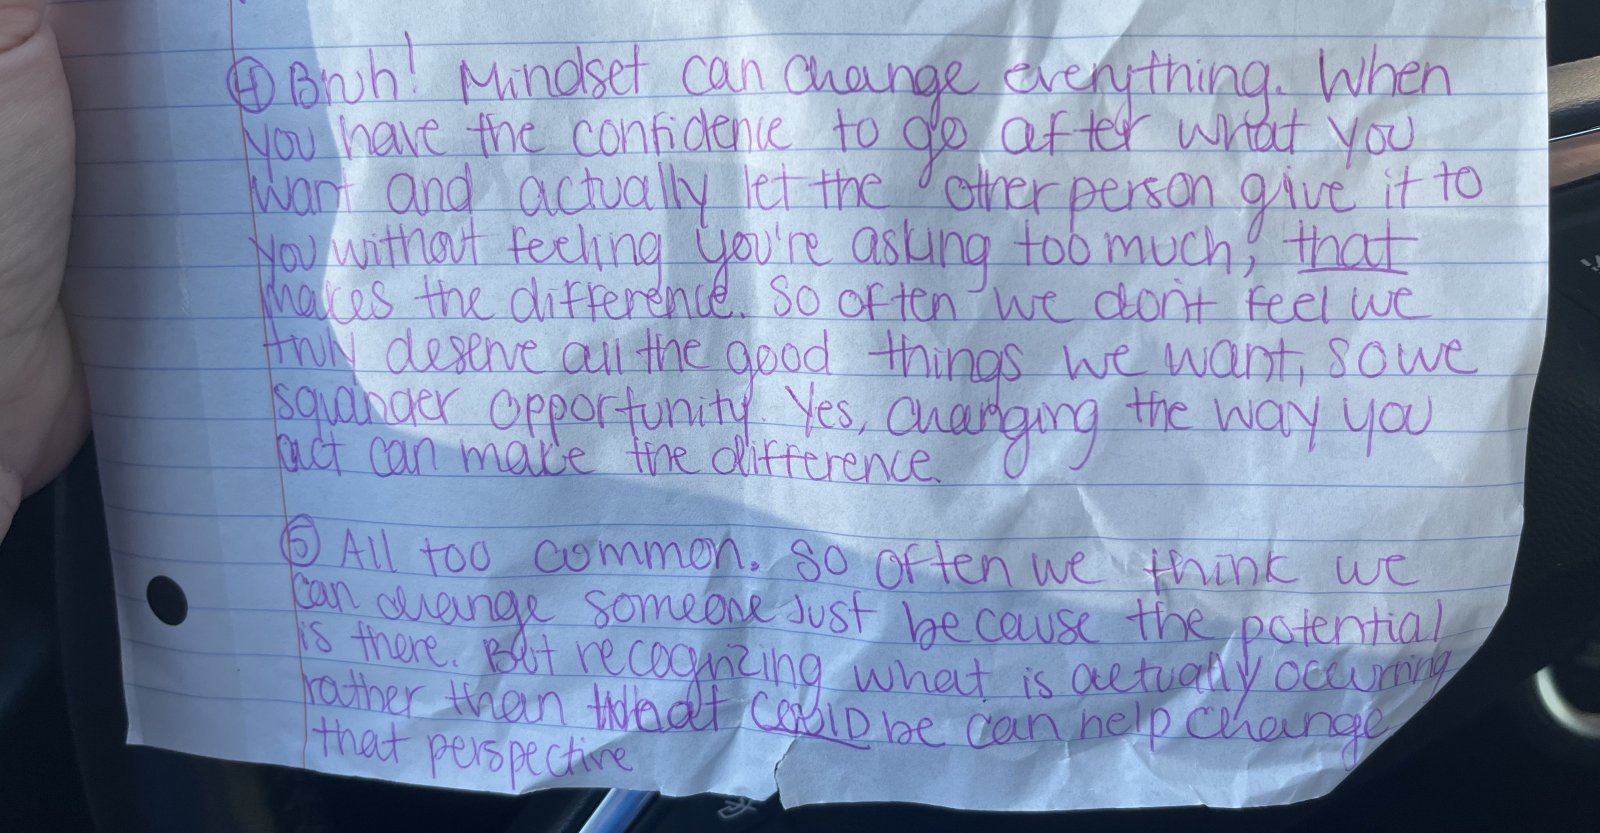 ④ Bruh! Mindset can change everything. When
you have the confidence to go after what you
want and actually let the other person give it to
you without feeling you're asking too much, that
makes the difference. So often we don't feel we
truly deserve all the good things we want, so we
squander opportunity. Yes, changing the way you
act can make the difference.
⑤ All too common. So often we think we
can change someone just because the potential
is there. But recognizing what is actually occurring
rather than what COULD be can help change
that perspective